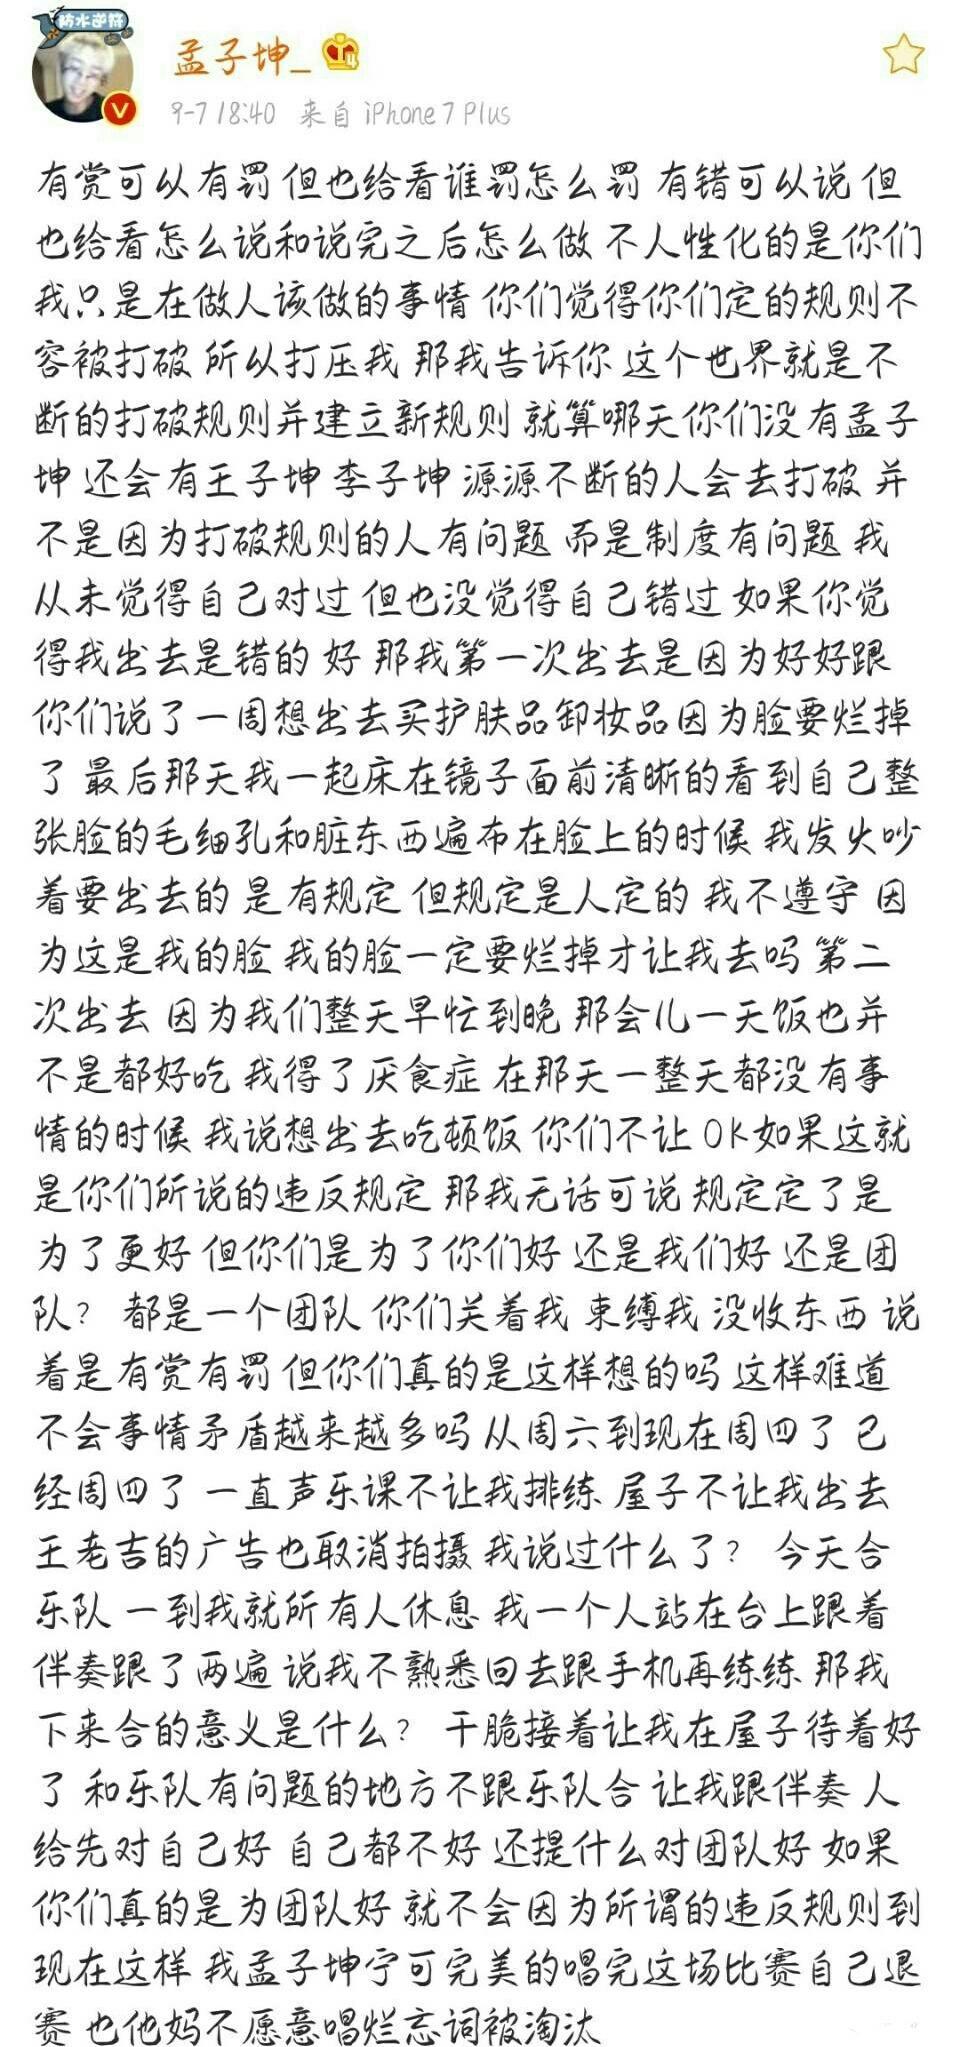 防水逆符
孟子坤_
9-7 18:40 来自 iPhone 7 Plus
有赏可以有罚 但也给看谁罚怎么罚 有错可以说 但
也给看怎么说和说完之后怎么做 不人性化的是你们
我只是在做人该做的事情 你们觉得你们定的规则不
容被打破 所以打压我 那我告诉你 这个世界就是不
断的打破规则并建立新规则 就算哪天你们没有孟子
坤 还会有王子坤 李子坤 源源不断的人会去打破 并
不是因为打破规则的人有问题 而是制度有问题 我
从未觉得自己对过 但也没觉得自己错过 如果你觉
得我出去是错的 好 那我第一次出去是因为好好跟
你们说了一周想出去买护肤品卸妆品因为脸要烂掉
了 最后那天我一起床在镜子面前清晰的看到自己整
张脸的毛细孔和脏东西遍布在脸上的时候 我发火吵
着要出去的 是有规定 但规定是人定的 我不遵守 因
为这是我的脸 我的脸一定要烂掉才让我去吗 第二
次出去 因为我们整天早忙到晚 那会儿一天饭也并
不是都好吃 我得了厌食症 在那天一整天都没有事
情的时候 我说想出去吃顿饭 你们不让 OK如果这就
是你们所说的违反规定 那我无话可说 规定定了是
为了更好 但你们是为了你们好 还是我们好 还是团
队？ 都是一个团队 你们关着我 束缚我 没收东西 说
着是有赏有罚 但你们真的是这样想的吗 这样难道
不会事情矛盾越来越多吗 从周六到现在周四了 已
经周四了 一直声乐课不让我排练 屋子不让我出去
王老吉的广告也取消拍摄 我说过什么了？ 今天合
乐队 一到我就所有人休息 我一个人站在台上跟着
伴奏跟了两遍 说我不熟悉回去跟手机再练练 那我
下来合的意义是什么？ 干脆接着让我在屋子待着好
了 和乐队有问题的地方不跟乐队合 让我跟伴奏 人
给先对自己好 自己都不好 还提什么对团队好 如果
你们真的是为团队好 就不会因为所谓的违反规则到
现在这样 我孟子坤宁可完美的唱完这场比赛自己退
赛 也他妈不愿意唱烂忘词被淘汰